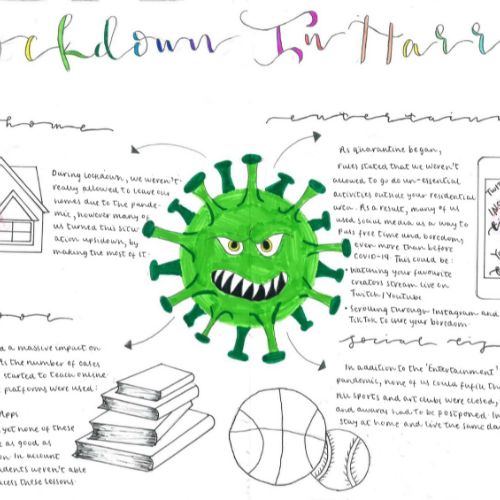 ockdown In Harr
home
During lockdown, we weren't
really allowed to leave our
homes due to the pande-
mic, however many of
us turned this situ-
ation upsdown, by
making the most of it.
entertain
As quarantine began,
rules stated that we weren't
allowed to go do un-essential
activities outside your residential
area. As a result, many of us
used social media as a way to
pass free time and boredoms
even more than before
COVID-19. This could be:
• Watching your favourite
creators stream live on
Twitch/YouTube
• Scrolling through Instagram and
TikTok to cure your boredom
d a massive impact on
As the number of cases
started to teach online
platforms were used:
Apps
yet none of these
as good as
on. In account
udents weren't able
these lessons
social
In addition to the 'Entertainment'
pandemic, none of us could fulfil th
All sports and art clubs were closed,
and awards had to be postponed. In
stay at home and live the same da